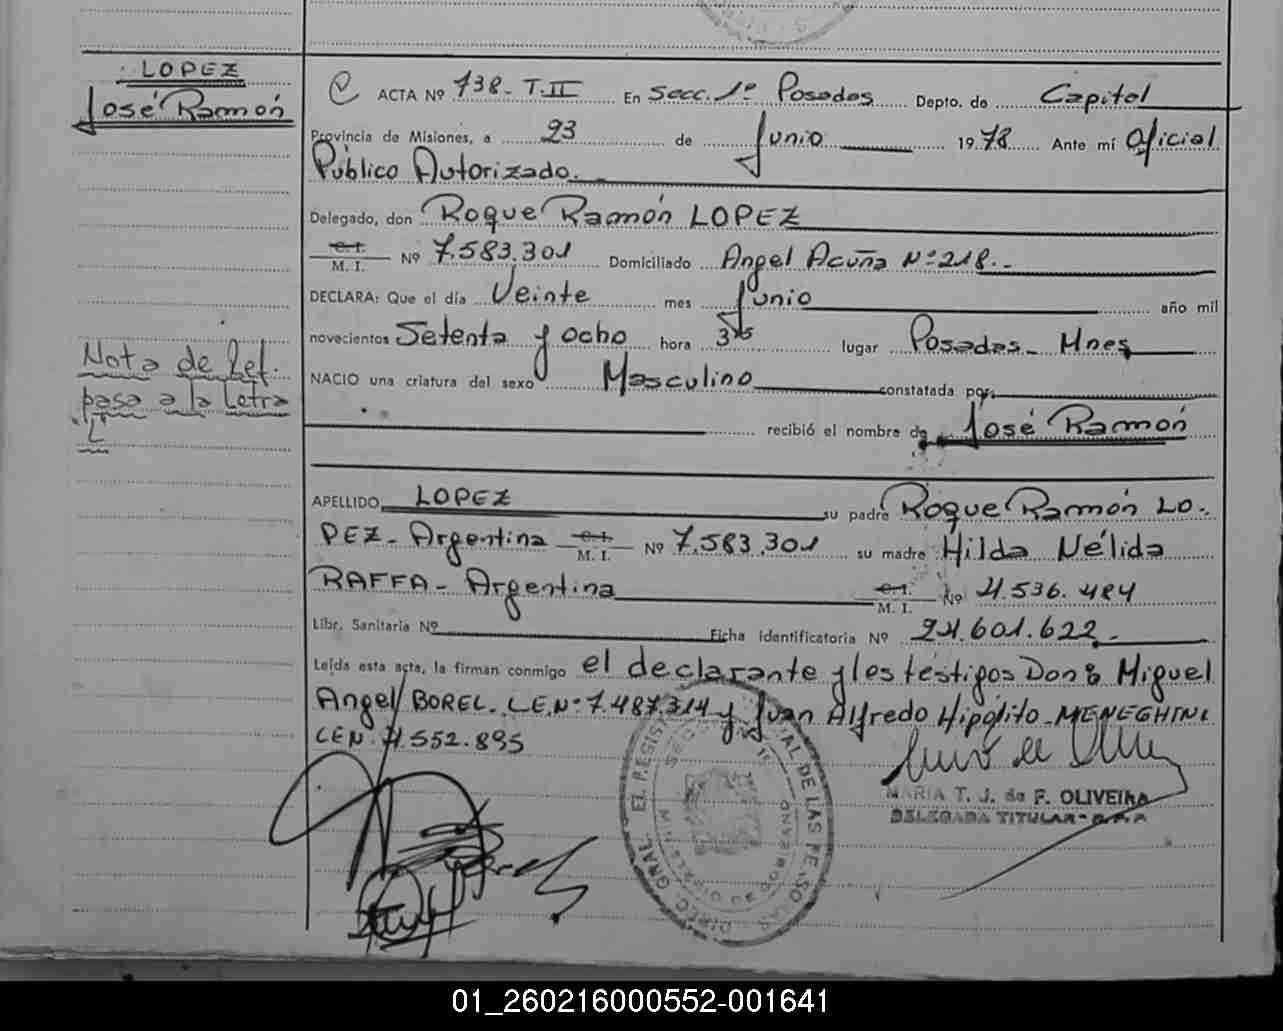 LOPEZ
José Ramón
ACTA Nº 738- T.II En Secc. 1º Posadas Depto. de Capital
Provincia de Misiones, a 23 de Junio 1978 Ante mí Oficial
Público Autorizado.
Delegado, don Roque Ramón LOPEZ
C.I.
M. I. Nº 7.583.301 Domiciliado Angel Acuña Nº 218.-
DECLARA: Que el día Veinte mes Junio año mil
novecientos Setenta y ocho hora 315 lugar Posadas- Mnes
Nota de Ref.
pasa a la Letra
"L"
NACIO una criatura del sexo Masculino constatada por
recibió el nombre de José Ramón
APELLIDO LOPEZ su padre Roque Ramón LO-
PEZ- Argentina C.I. M. I. Nº 7.583.301 su madre Hilda Nélida
RAFFA- Argentina C.I. M. I. Nº 4.536.484
Libr. Sanitaria Nº Ficha identificatoria Nº 24.601.622.-
Leída esta acta, la firman conmigo el declarante y los testigos Don Miguel
Angel BOREL. L.E.Nº 7.487.314 y Juan Alfredo Hipólito MENEGHINI
LEN. 4.552.895
MARIA T. J. de F. OLIVEIRA
DELEGADA TITULAR
DE LAS
01_260216000552-001641